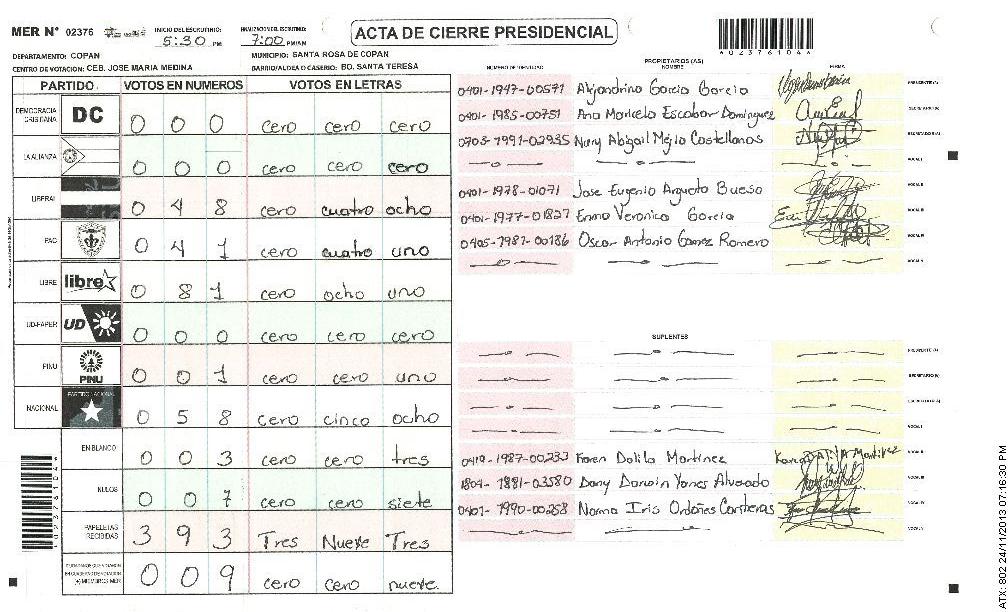 MER N° 02376 INICIO DEL ESCRUTINIO: 5:30 PM FINALIZACION DEL ESCRUTINIO: 7:00 PM/AM
ACTA DE CIERRE PRESIDENCIAL
02376104
DEPARTAMENTO: COPAN MUNICIPIO: SANTA ROSA DE COPAN
CENTRO DE VOTACION: CEB. JOSE MARIA MEDINA BARRIO/ALDEA O CASERIO: BO. SANTA TERESA
PARTIDO VOTOS EN NUMEROS VOTOS EN LETRAS
DEMOCRACIA CRISTIANA DC 0 0 0 cero cero cero
LA ALIANZA 0 0 0 cero cero cero
LIBERAL 0 4 8 cero cuatro ocho
PAC 0 4 1 cero cuatro uno
LIBRE libre 0 8 1 cero ocho uno
UD-FAPER UD 0 0 0 cero cero cero
PINU PINU 0 0 1 cero cero uno
NACIONAL PARTIDO NACIONAL 0 5 8 cero cinco ocho
EN BLANCO 0 0 3 cero cero tres
NULOS 0 0 7 cero cero siete
PAPELETAS RECIBIDAS 3 9 3 Tres Nueve Tres
CIUDADANOS QUE VOTARON EN CUADERNO DE VOTACION (+) MIEMBROS MER 0 0 9 cero cero nueve
PROPIETARIOS (AS)
NUMERO DE IDENTIDAD NOMBRE FIRMA
0401-1947-00571 Alejandrino Garcia Garcia PRESIDENTE (A)
0401-1985-00751 Ana Maricela Escobar Dominguez SECRETARIO (A)
0703-1991-02935 Nury Abigail Mejia Castellanos ESCRUTADOR (A)
VOCAL I
0401-1978-01071 Jose Eugenio Argueta Bueso VOCAL II
0401-1977-01827 Enma Veronica Garcia VOCAL III
0405-1987-00186 Oscar Antonio Gomez Romero VOCAL IV
VOCAL V
SUPLENTES
PRESIDENTE (A)
SECRETARIO (A)
ESCRUTADOR (A)
VOCAL I
0419-1987-00233 Karen Dalila Martinez Karen Dalila Martinez VOCAL II
1804-1881-03580 Dany Darwin Yanes Alvarado VOCAL III
0401-1990-00258 Norma Iris Ordoñes Contreras VOCAL IV
VOCAL V
ATX: 802 24/11/2013 07:16:30 PM